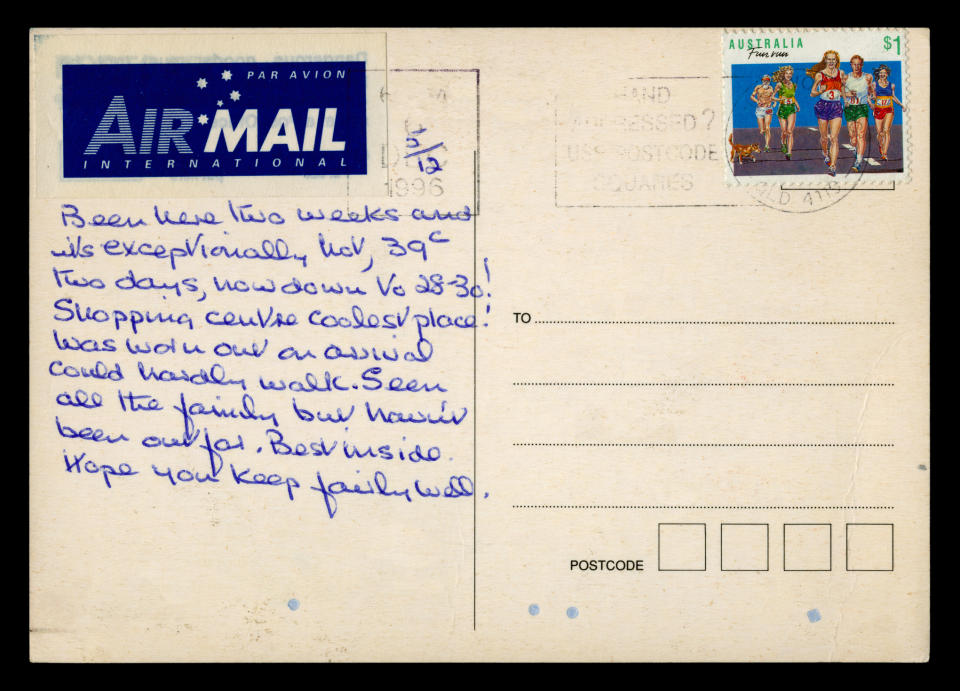 PAR AVION
AIR MAIL
INTERNATIONAL
6 PM
DEC
1996
5/12
HAND
ADDRESSED?
USE POSTCODE
SQUARES
AUSTRALIA
Fun run
$1
QLD 411
Been here two weeks and
its exceptionally hot, 39c
two days, now down to 28-30!
Shopping centre coolest place!
Was worn out on arrival
could hardly walk. Seen
all the family but havn't
been out far. Best inside.
Hope you keep fairly well.
TO
POSTCODE